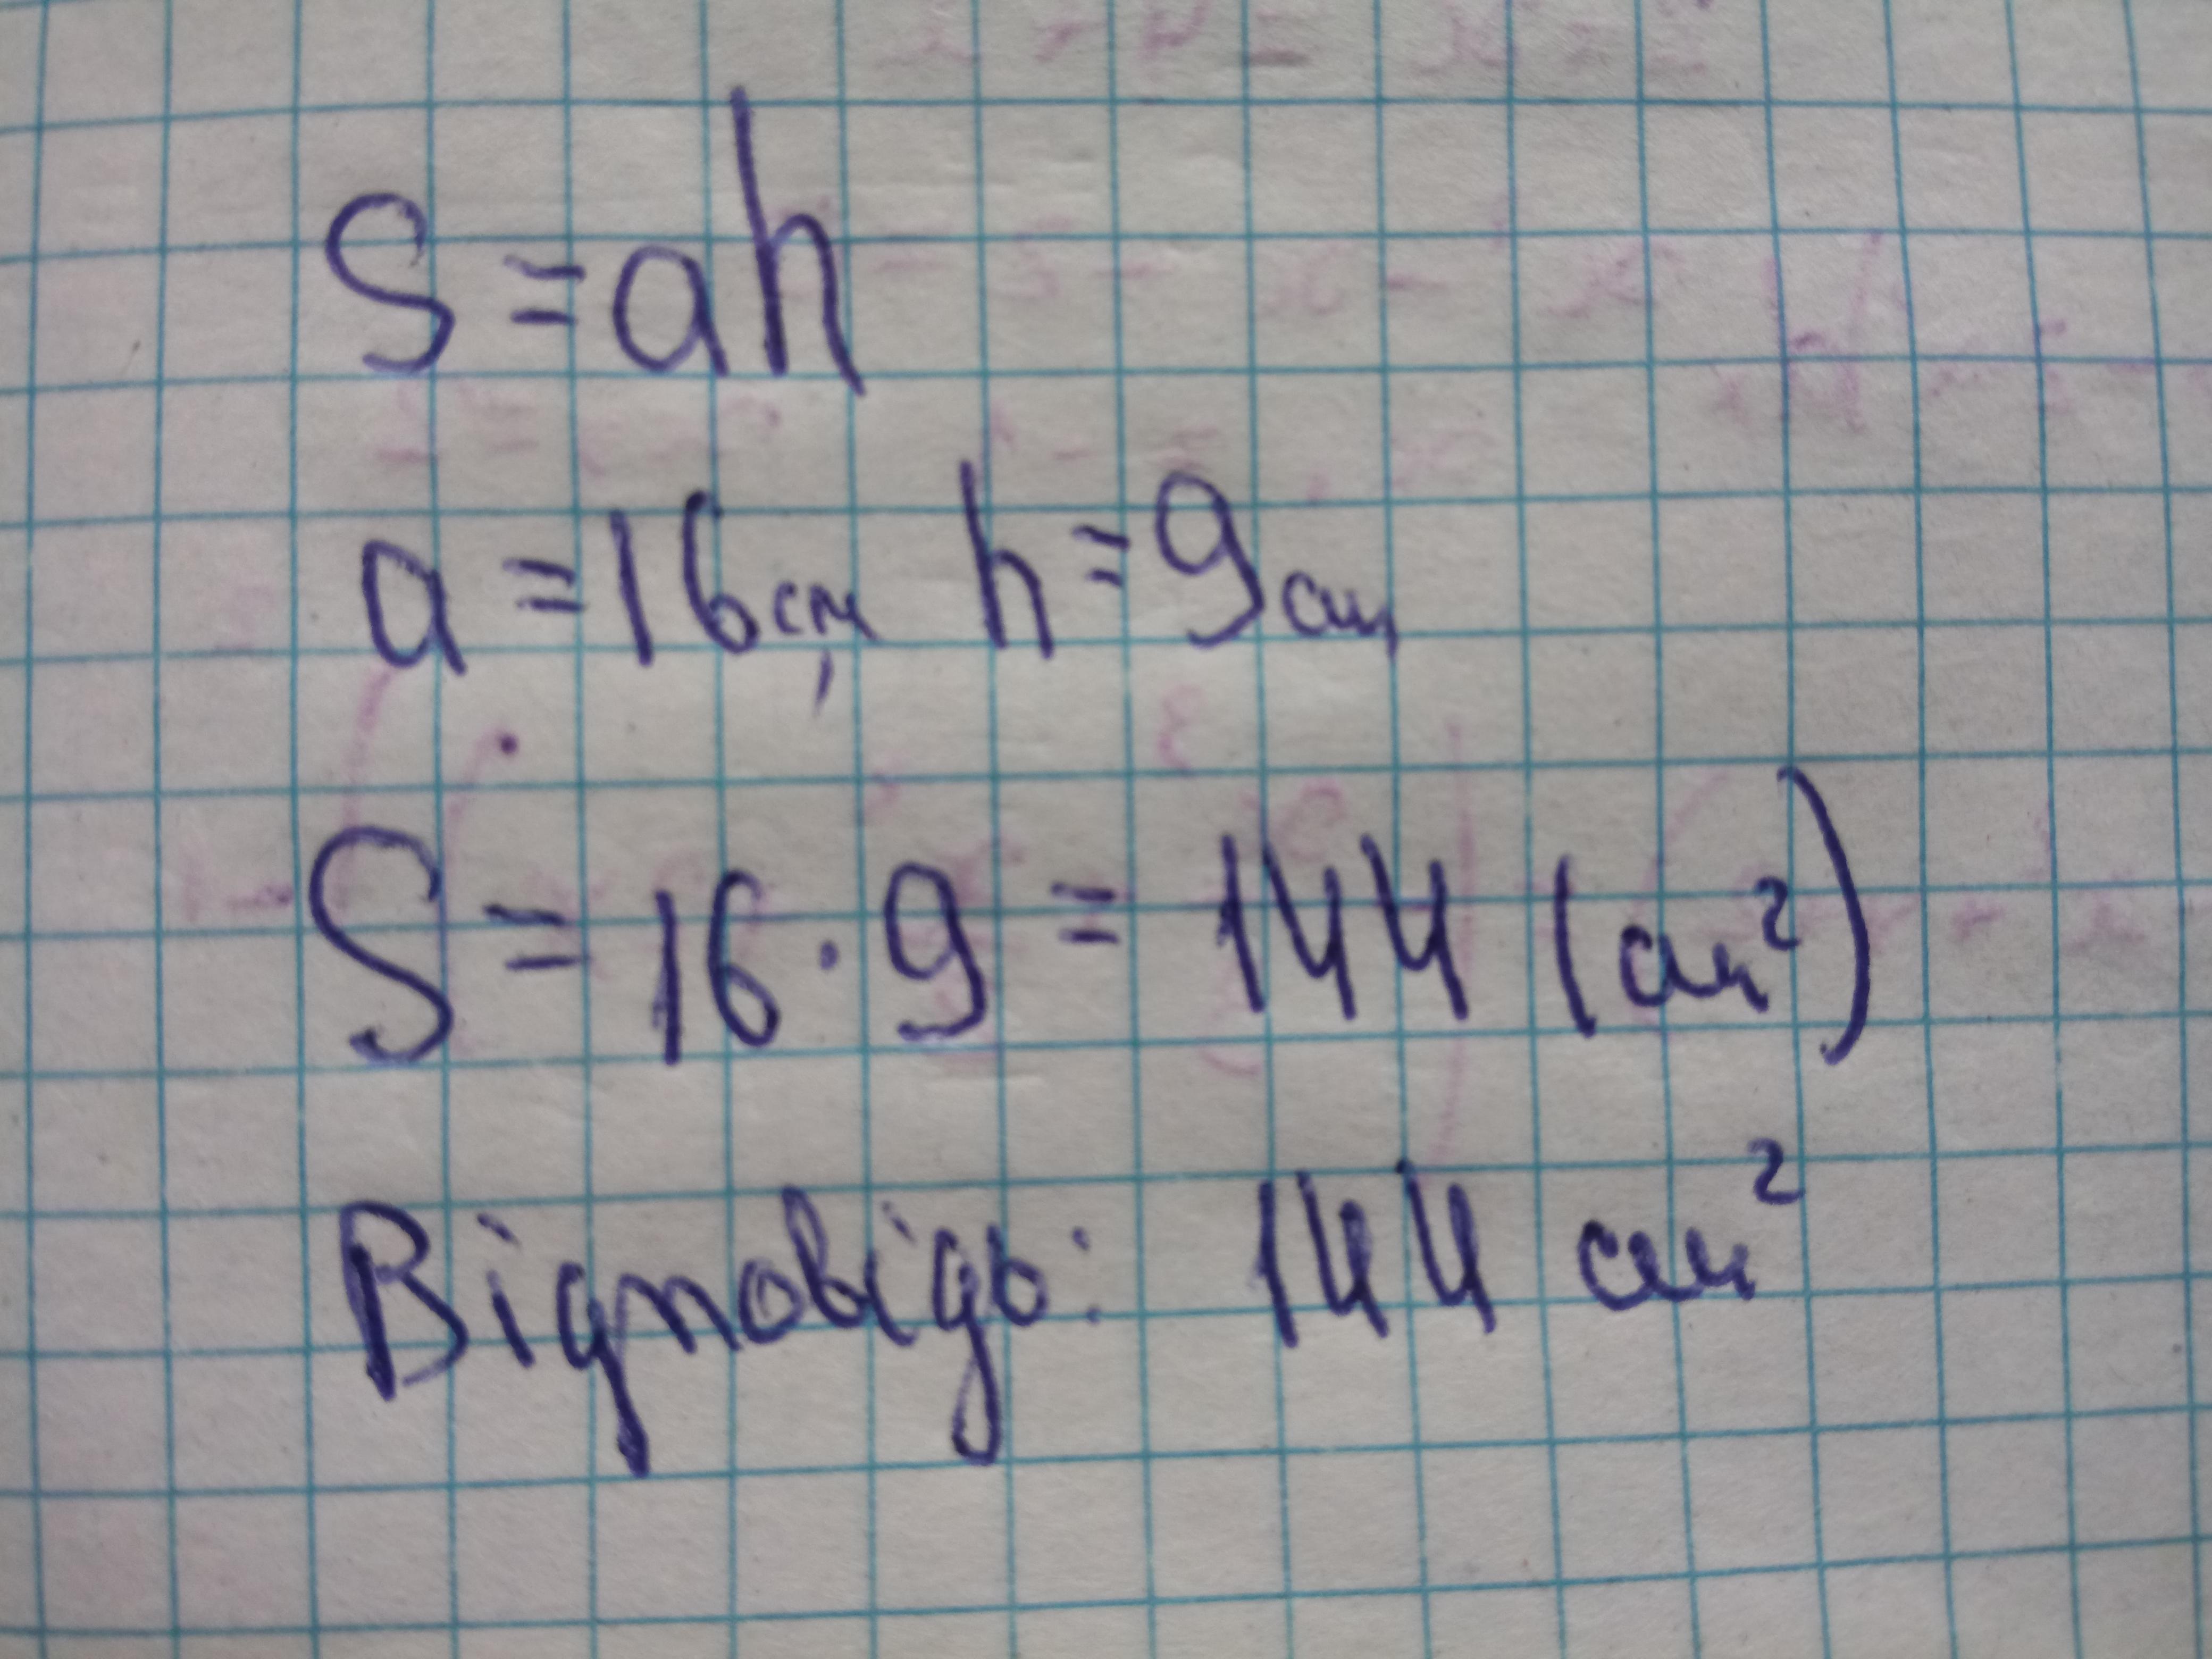 S = ah
a = 16 см, h = 9 см
S = 16 · 9 = 144 (см²)
Відповідь: 144 см²